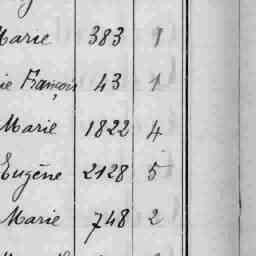 Marie 383 1
ie François 43 1
Marie 1822 4
Eugène 2128 5
Marie 748 2